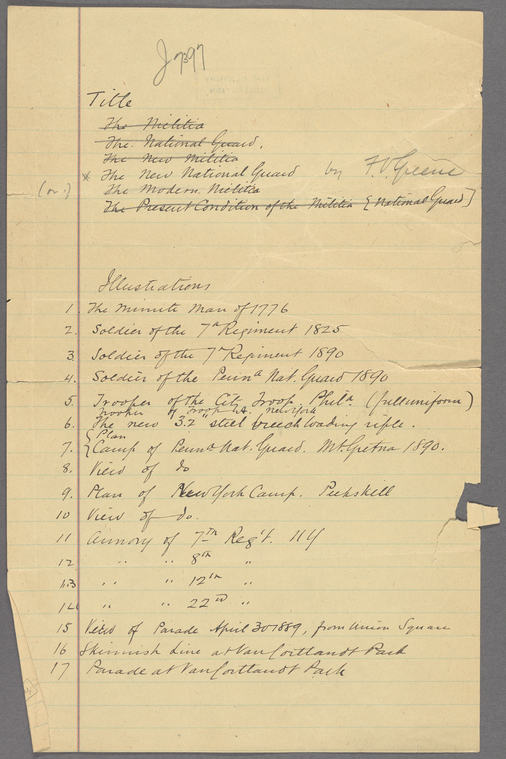 J 797
Title
The Militia
The National Guard.
The New Militia
* The New National Guard by F.V. Greene
(or:) The Modern Militia
The Present Condition of the Militia [National Guard]
Illustrations
1. The Minute Man of 1776
2. Soldier of the 7th Regiment 1825
3 Soldier of the 7th Regiment 1890
4. Soldier of the Penna Nat. Guard 1890
5. Trooper of the City Troop. Phila (full uniform)
Trooper of Troop A. New York
6. The new 3.2" steel breech loading rifle.
Plan
7. Camp of Penna Nat. Guard. Mt. Gretna 1890.
8. View of do
9. Plan of New York Camp. Peekskill
10 View of do.
11 Armory of 7th Reg't. NY
12 " " 8th "
13 " " 12th "
14 " " 22nd "
15 View of Parade April 30 1889, from Union Square
16 Skirmish Line at Van Cortlandt Park
17 Parade at Van Cortlandt Park